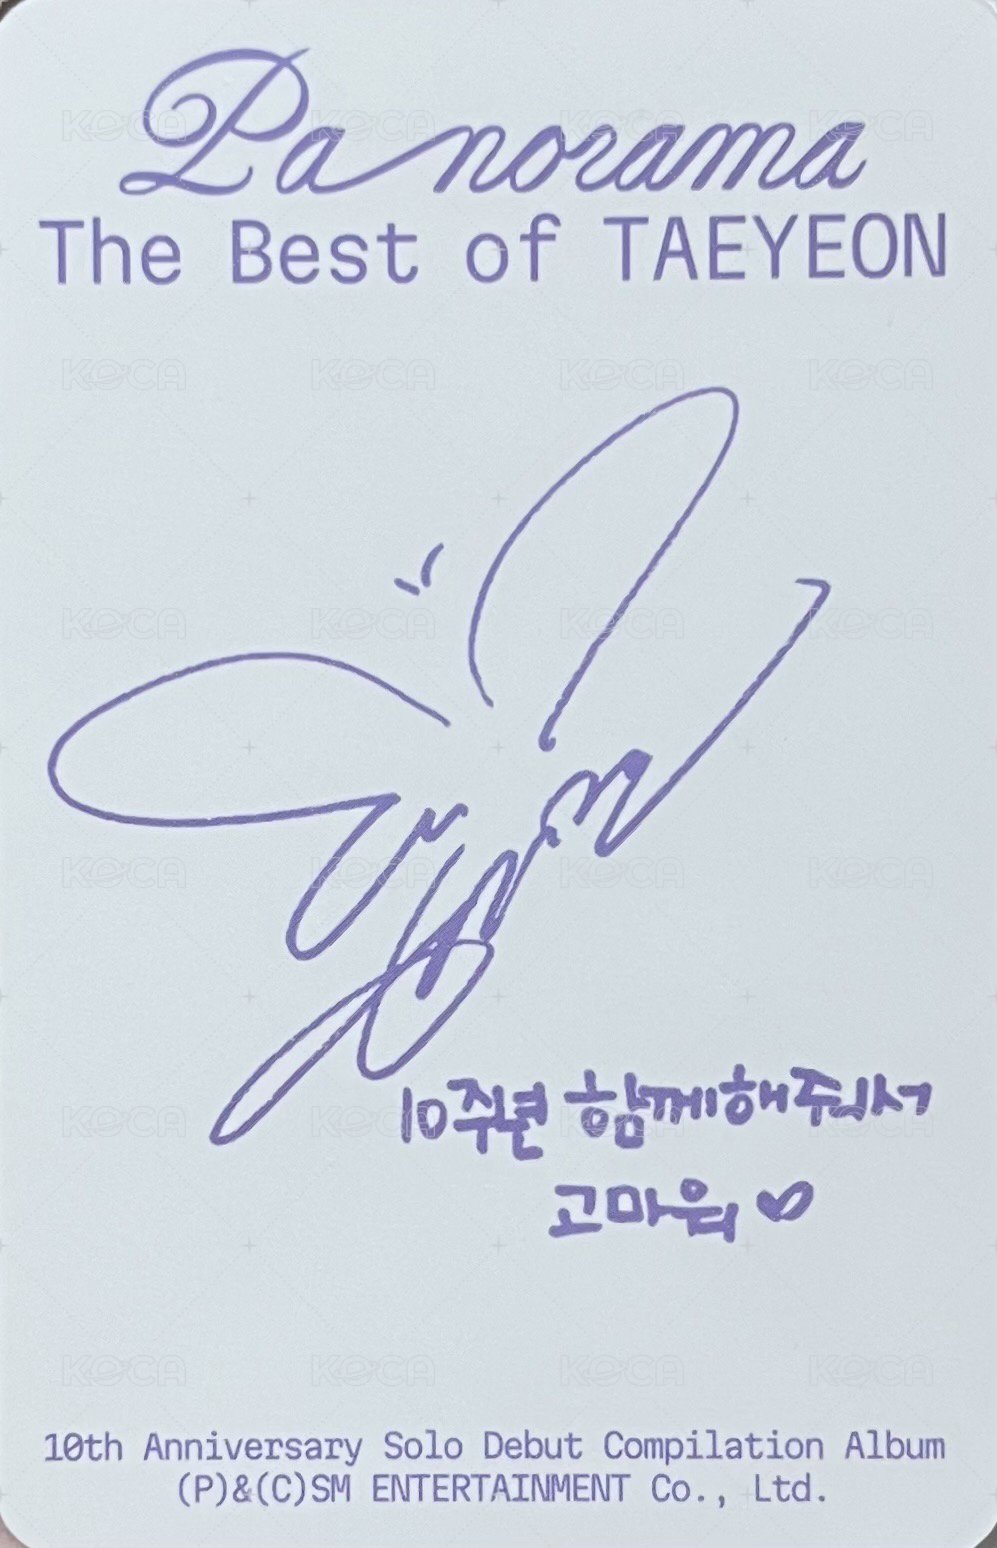 Panorama
The Best of TAEYEON
10주년 함께해줘서
고마워♥
10th Anniversary Solo Debut Compilation Album
(P)&(C)SM ENTERTAINMENT Co., Ltd.